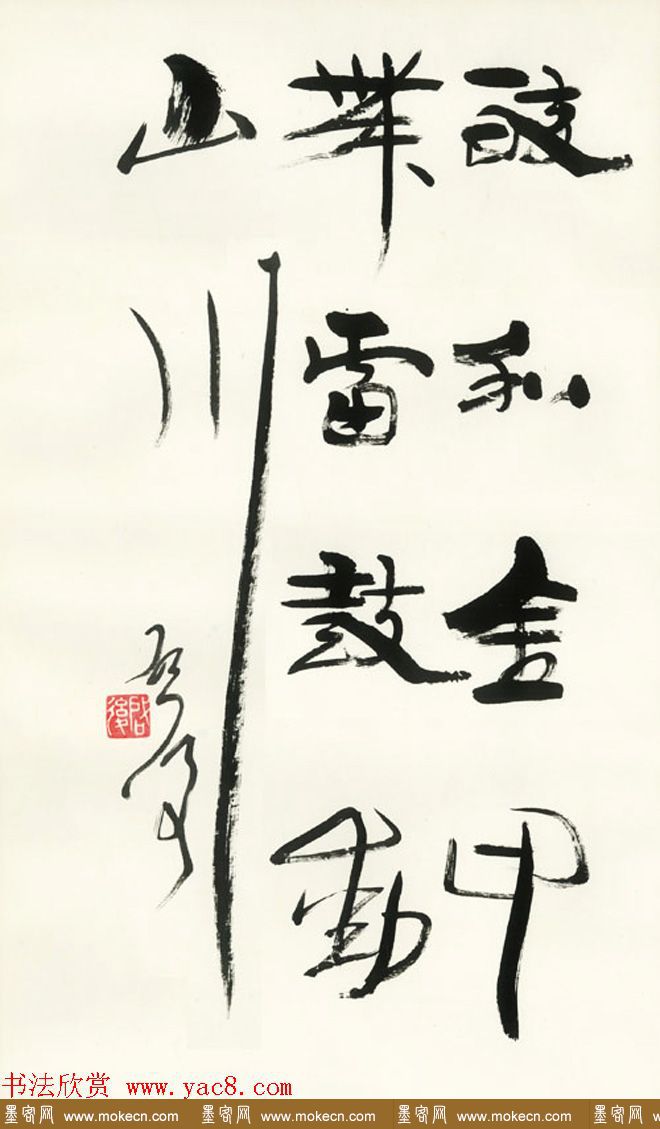 醉和金甲
舞雷鼓動
山川
书法欣赏 www.yac8.com
墨客网 www.mokecn.com 墨客网 www.mokecn.com 墨客网 www.mokecn.com 墨客网 www